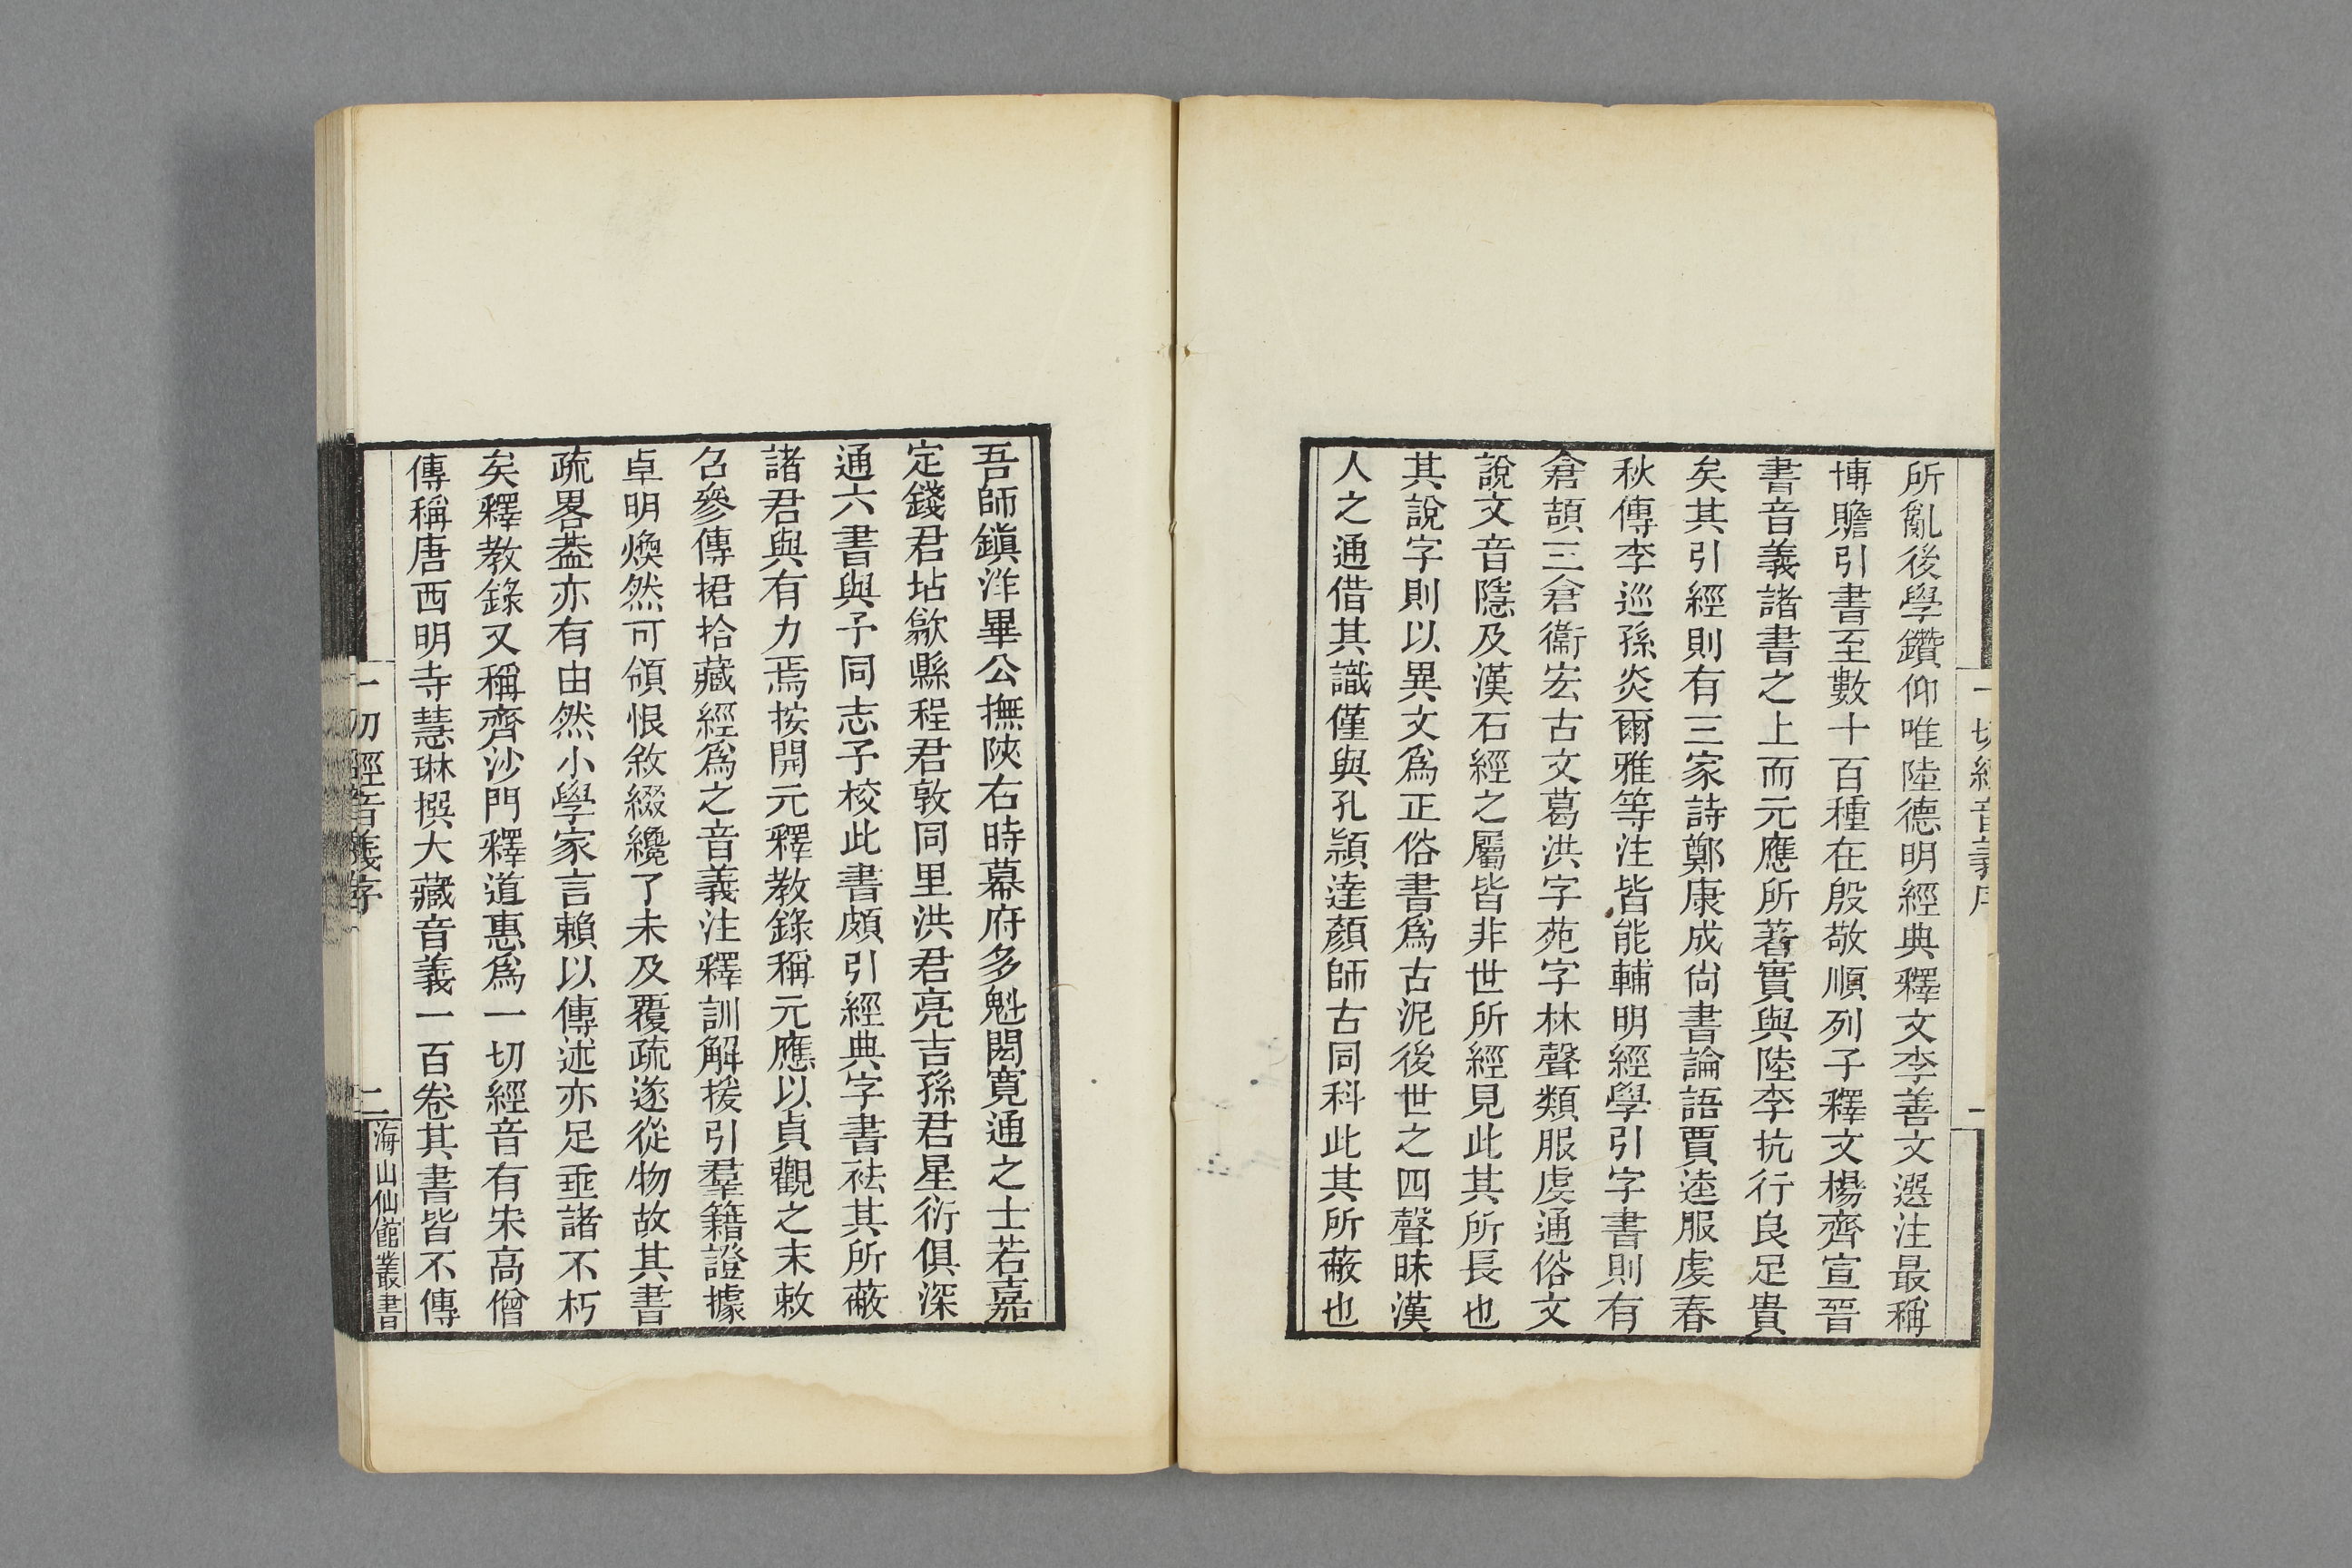 所亂後學鑽仰唯陸德明經典釋文李善文選注最稱
博贍引書至數十百種在殷敬順列子釋文楊齊宣晉
書音義諸書之上而元應所著實與陸李抗行良足貴
矣其引經則有三家詩鄭康成尙書論語賈逵服虔春
秋傳李巡孫炎爾雅等注皆能輔明經學引字書則有
倉頡三倉衞宏古文葛洪字苑字林聲類服虔通俗文
說文音隱及漢石經之屬皆非世所經見此其所長也
其說字則以異文爲正俗書爲古泥後世之四聲昧漢
人之通借其識僅與孔頴達顏師古同科此其所蔽也
一切經音義序
二
吾師鎭洋畢公撫陝右時幕府多魁閎寬通之士若嘉
定錢君坫歙縣程君敦同里洪君亮吉孫君星衍俱深
通六書與予同志予校此書頗引經典字書祛其所蔽
諸君與有力焉按開元釋教錄稱元應以貞觀之末敕
召參傳捃拾藏經爲之音義注釋訓解援引羣籍證據
卓明煥然可領恨敘綴纔了未及覆疏遂從物故其書
疏畧葢亦有由然小學家言賴以傳述亦足垂諸不朽
矣釋教錄又稱齊沙門釋道惠爲一切經音有宋高僧
傳稱唐西明寺慧琳撰大藏音義一百卷其書皆不傳
一切經音義序
二
海山仙館叢書